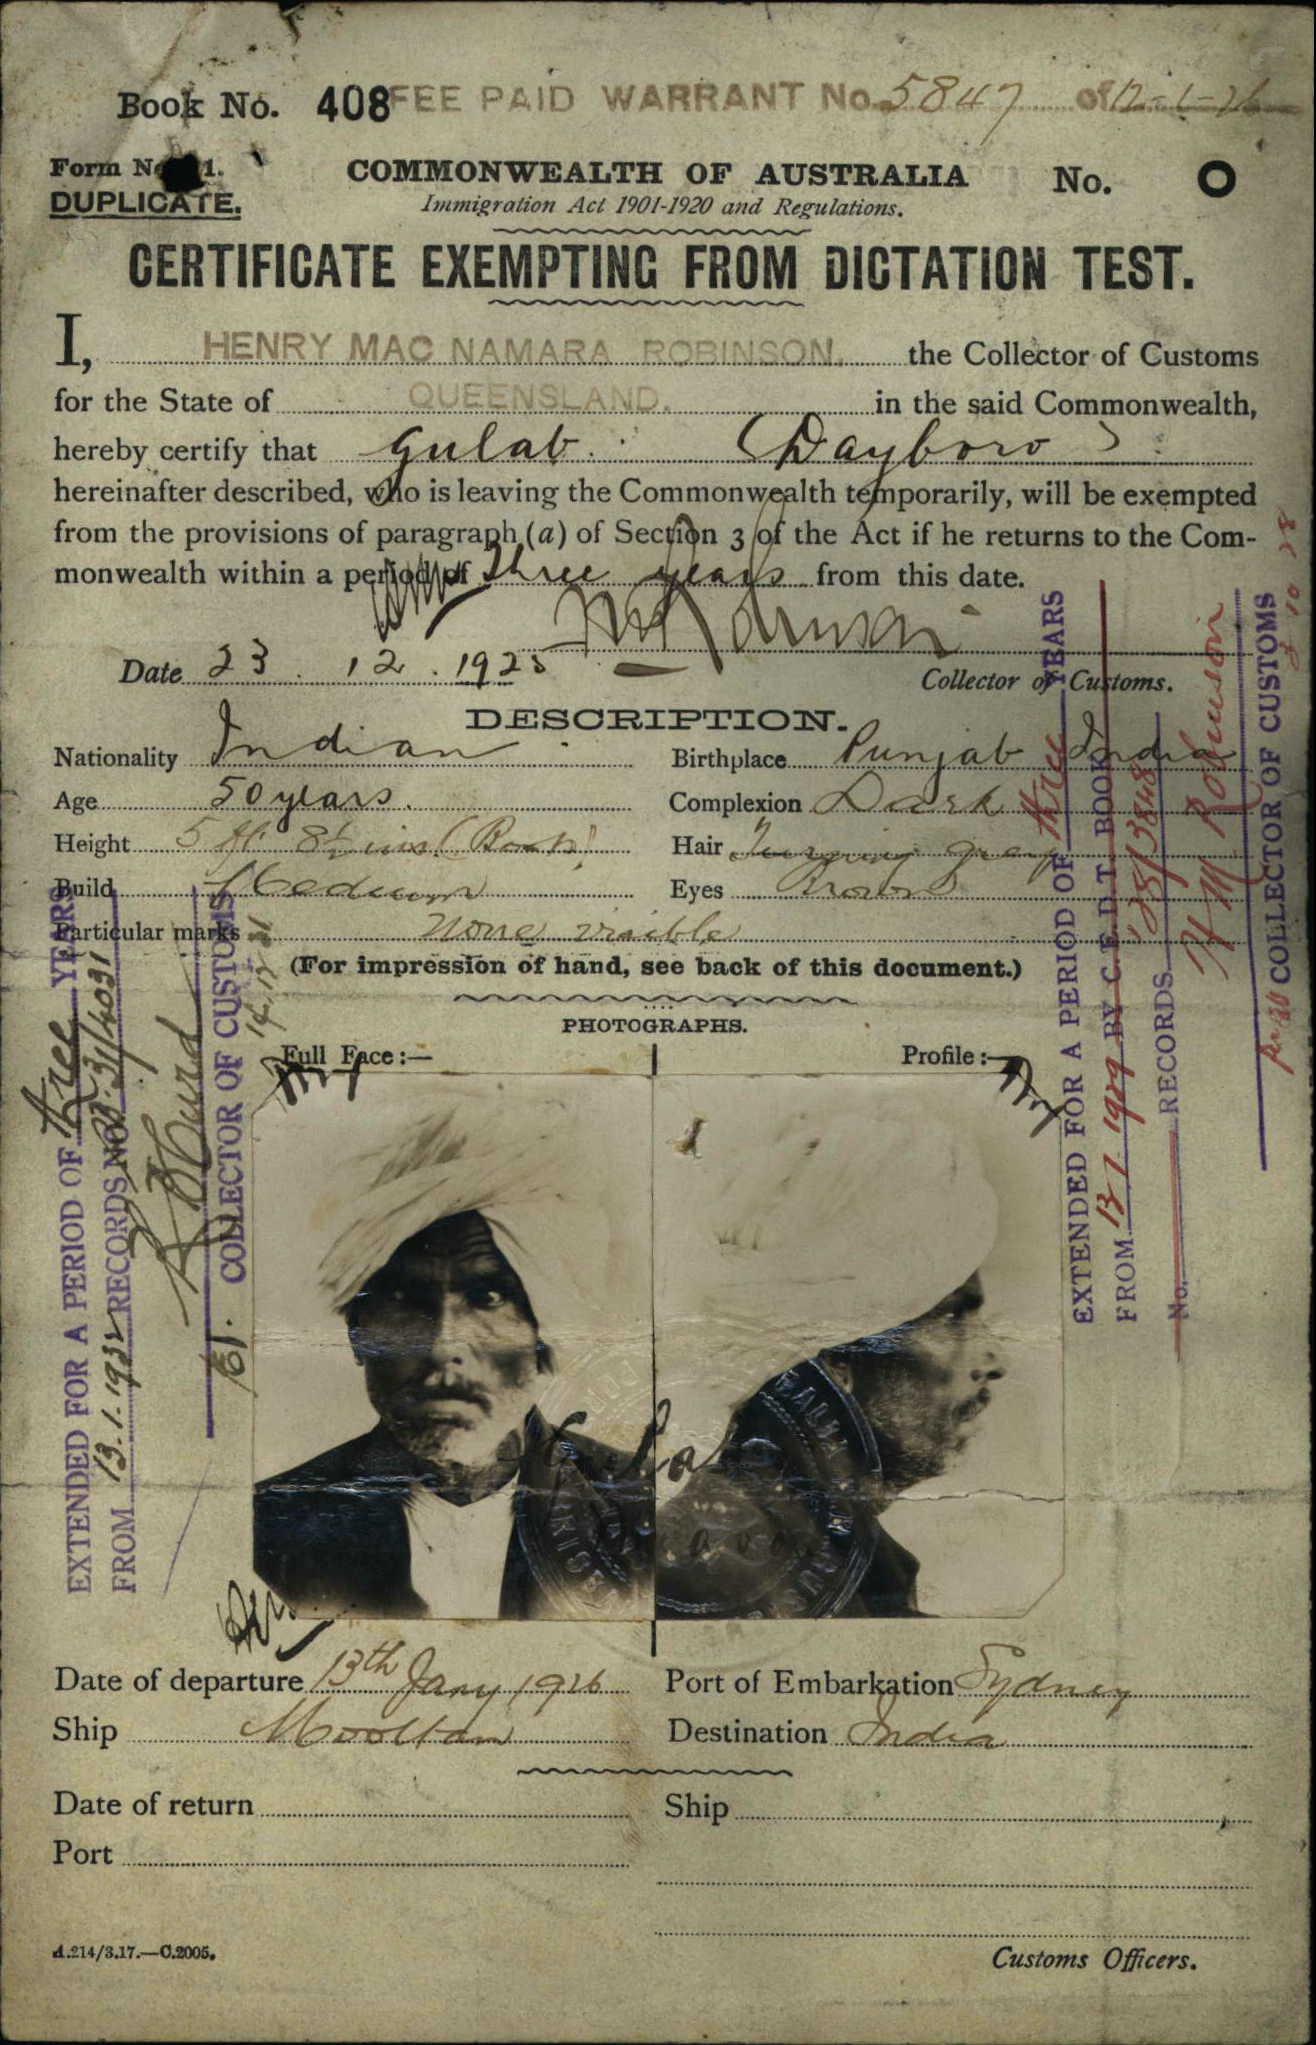 Book No. 408 FEE PAID WARRANT No. 5847 of 12-1-26
Form No. 1.
DUPLICATE.
COMMONWEALTH OF AUSTRALIA No. O
Immigration Act 1901-1920 and Regulations.
CERTIFICATE EXEMPTING FROM DICTATION TEST.
I, HENRY MAC NAMARA ROBINSON, the Collector of Customs
for the State of QUEENSLAND. in the said Commonwealth,
hereby certify that Gulab (Dayboro)
hereinafter described, who is leaving the Commonwealth temporarily, will be exempted
from the provisions of paragraph (a) of Section 3 of the Act if he returns to the Com-
monwealth within a period of Three years from this date.
Date 23.12.1925
Collector of Customs.
DESCRIPTION.
Nationality Indian Birthplace Punjab India
Age 50 years. Complexion Dark
Height 5 ft 8½ ins (Boots) Hair Turning grey
Build Medium Eyes Brown
Particular marks None visible
(For impression of hand, see back of this document.)
PHOTOGRAPHS.
Full Face :— Profile :—
EXTENDED FOR A PERIOD OF three YEARS
FROM 13.1.1932 RECORDS No. 31/4031
COLLECTOR OF CUSTOMS
14.12.31
EXTENDED FOR A PERIOD OF three YEARS
FROM 13 1 1929 BY C.E.D.T. BOOK
No. RECORDS 28/3848
H M Robinson
COLLECTOR OF CUSTOMS
Date of departure 13th Jany 1926 Port of Embarkation Sydney
Ship Mooltan Destination India
Date of return Ship
Port
A.214/3.17.—C.2005.
Customs Officers.